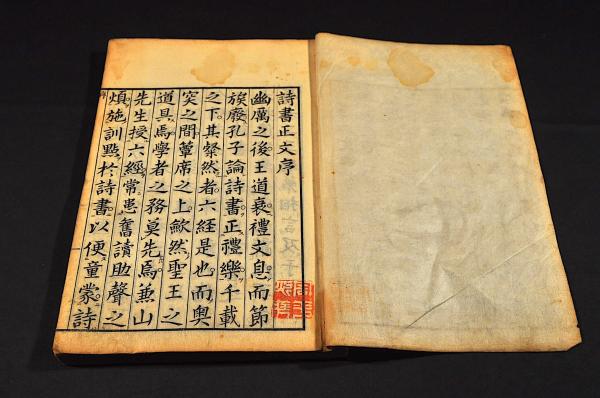 詩書正文序
幽厲之後王道衰禮文息而節
族廢孔子論詩書正禮樂千載
之下其粲然者六経是也而奥
窔之間簟席之上歛然聖王之
道具焉學者之務莫先焉蒹山
先生授六經常患舊讀助聲之
煩施訓點於詩書以便童蒙詩